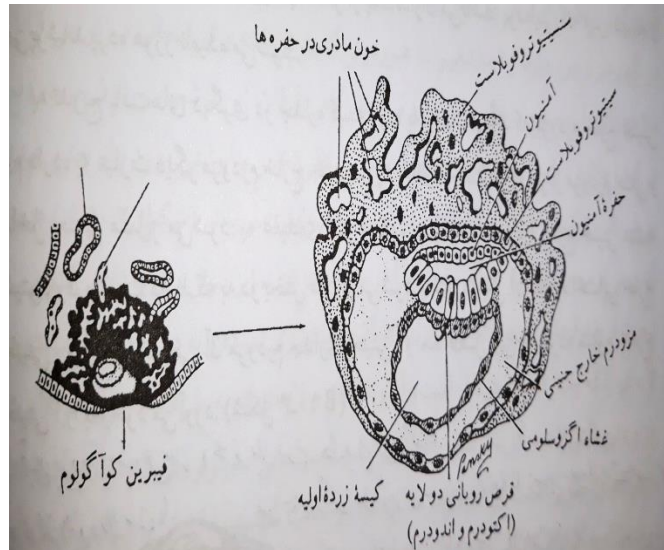 خون مادری در حفره ها
سنسیتوتروفوبلاست
آمنیون
سیتوتروفوبلاست
حفرهٔ آمنیون
مزودرم خارج جنینی
غشاء اگزوسلومی
قرص رویانی دو لایه
(اکتودرم و اندودرم)
کیسهٔ زردهٔ اولیه
فیبرین کوآگولوم